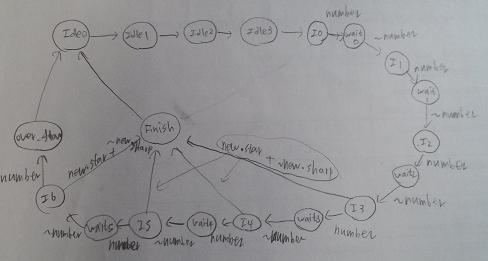 Idle1
Idle2
Idle3
I0
number
wait
0
~number
I1
number
wait
~number
I2
number
~number
I3
number
waits
~number
I4
number
~number
I5
number
waits
~number
I6
number
Finish
new.star
+ ~new.sharp
new.star +
~new
sharp